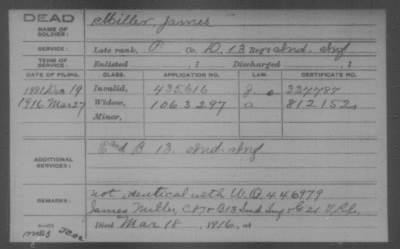 DEAD
NAME OF SOLDIER:
Miller, James
SERVICE:
Late rank, P Co. D, 13 Ind. Inf
TERM OF SERVICE:
Enlisted , 1 Discharged , 1
DATE OF FILING. CLASS. APPLICATION NO. LAW. CERTIFICATE NO.
1881 19 Invalid, 435616 337787
1916 Mar 27 Widow, 1063297 a 812152
Minor,
ADDITIONAL SERVICES:
B 13. Ind. Inf
REMARKS:
not identical with W.O. 446979
James Miller, & B 13 Ind Inf & G 21 V.R.C.
Died Mar 18, 1916, at